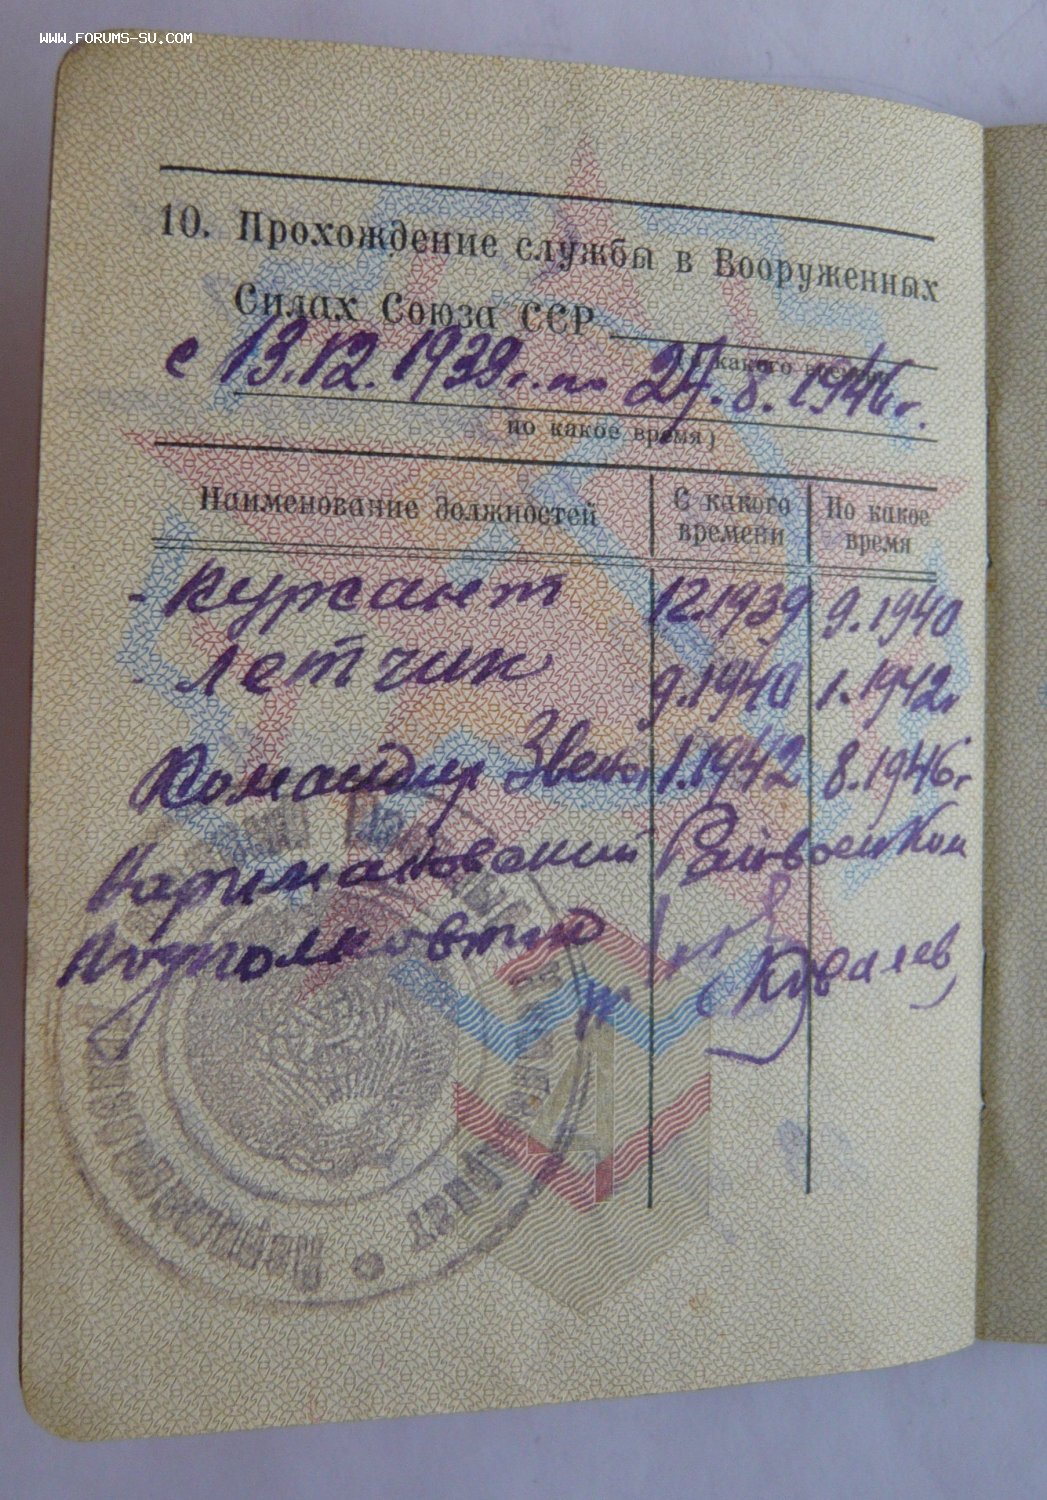 WWW.FORUMS-SU.COM
10. Прохождение службы в Вооруженных
Силах Союза ССР
с какого времени
с 13.12.1939 г. по 27.8.1946 г.
по какое время)
Наименование должностей С какого времени По какое время
- курсант 12.1939 9.1940
- летчик 9.1940 1.1942 г
Командир Звена 1.1942 8.1946 г
Наримановский Райвоенком
подполковник
(Ковалев
Наримановский